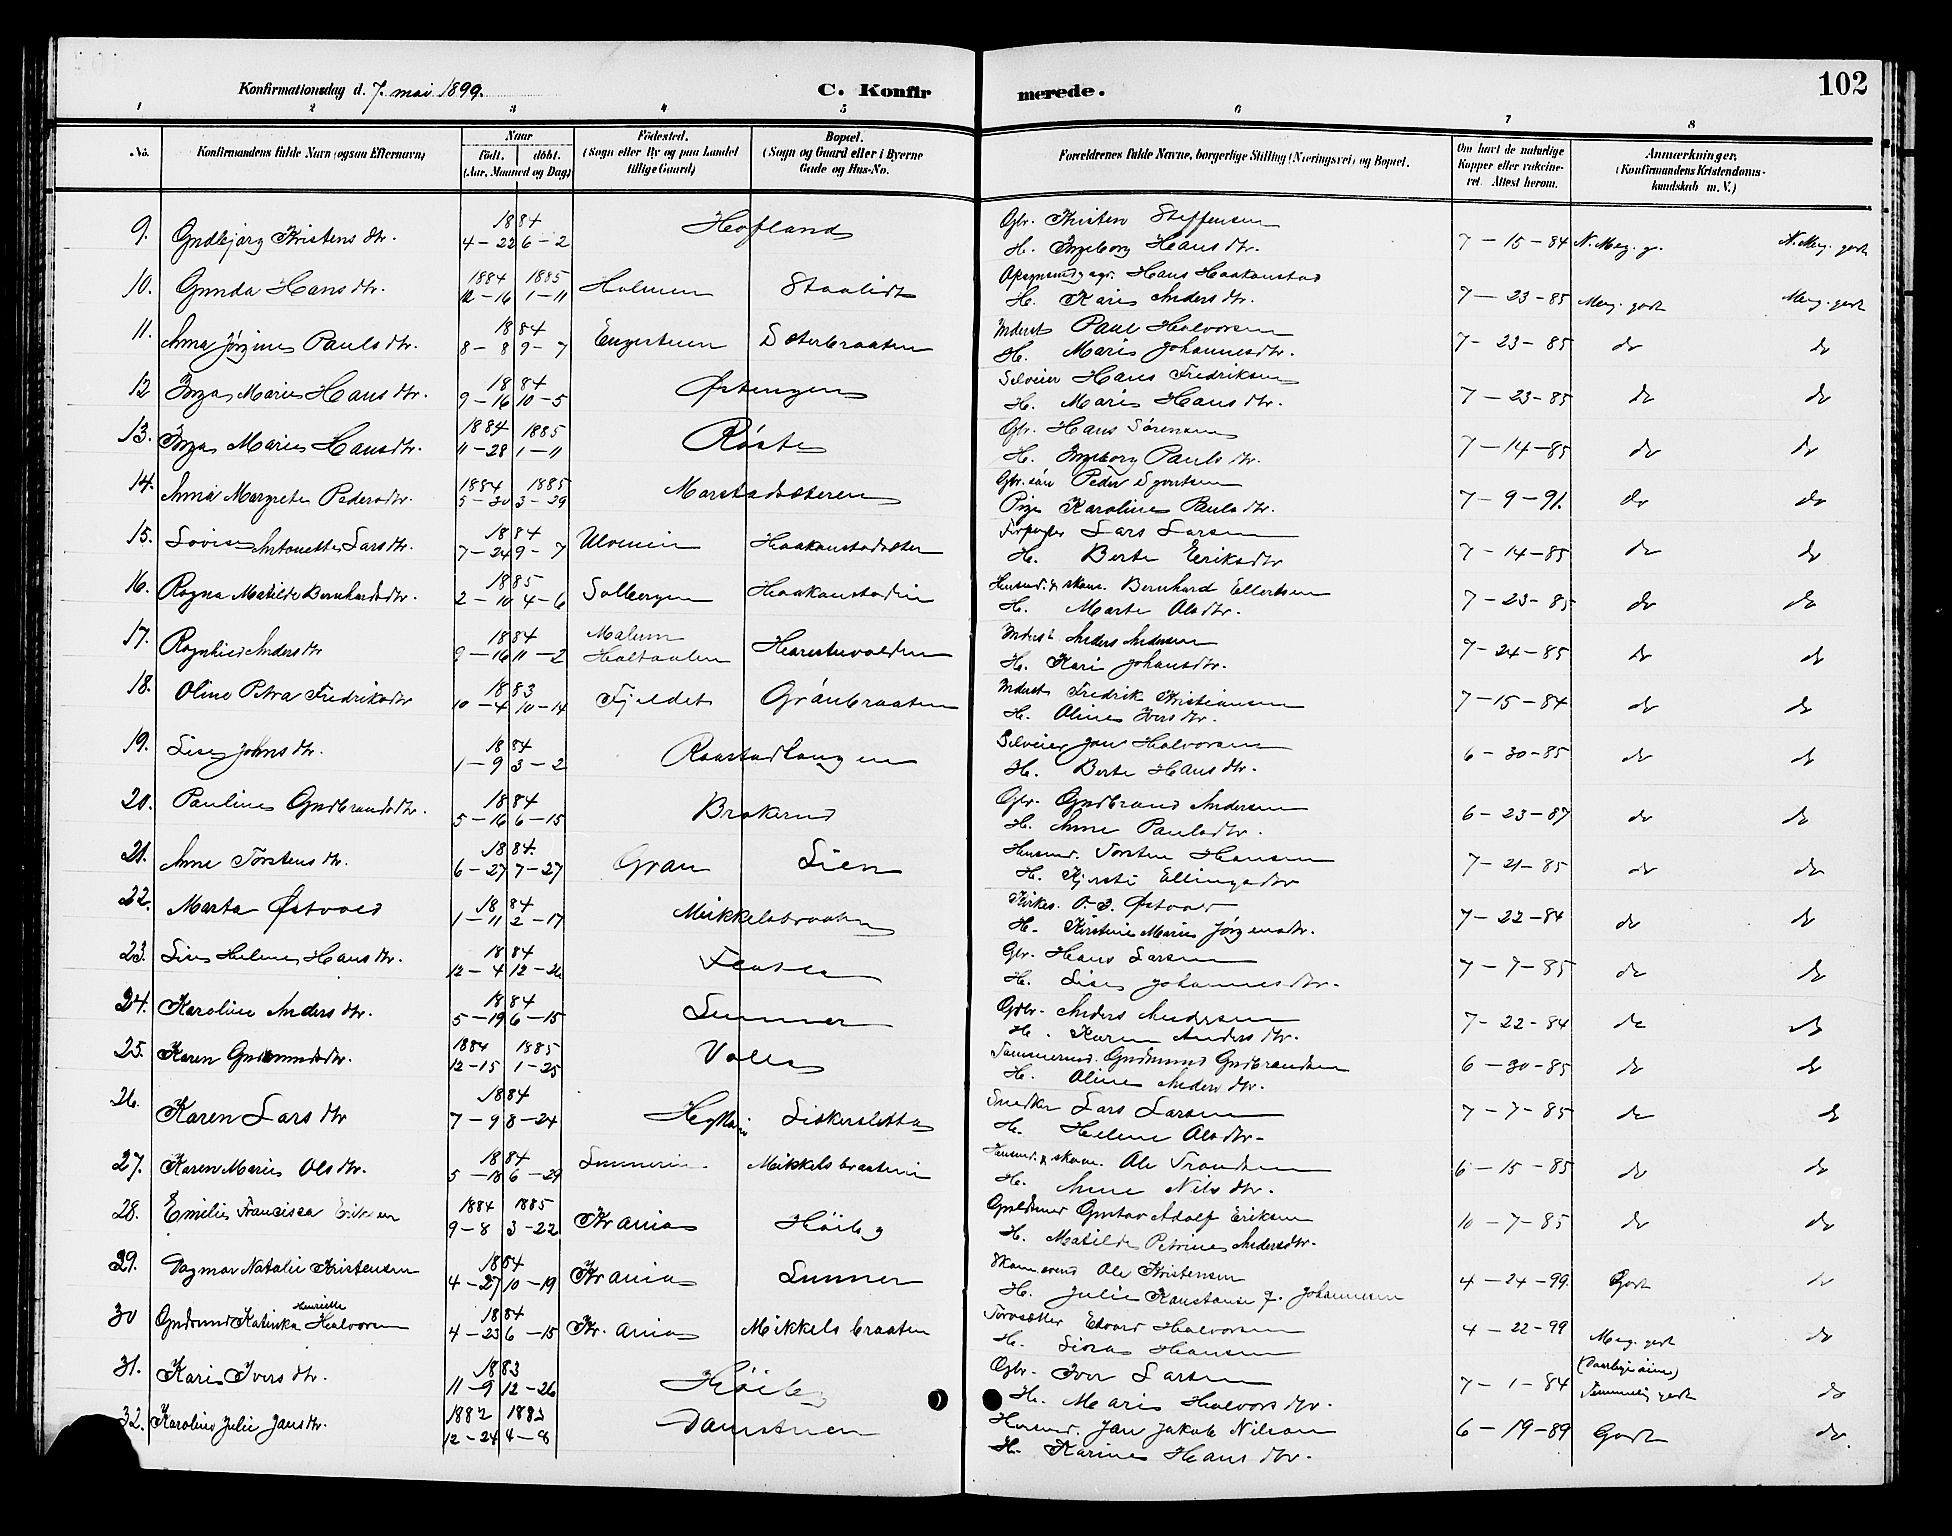 Konfirmationsdag d. 7. mai 1899.
C. Konfir
merede.
102
1 2 3 4 5 6 7 8
No.
Konfirmandens fulde Navn (ogsaa Efternavn)
Naar
født. døbt.
(Aar, Maaned og Dag)
Fødested.
(Sogn eller By og paa Landet
tillige Gaard)
Bopæl.
(Sogn og Gaard eller i Byerne
Gade og Hus-No.
Forældrenes fulde Navne, borgerlige Stilling (Næringsvei) og Bopæl.
Om havt de naturlige
Kopper eller vakcine-
ret. Attest herom.
Anmærkninger.
(Konfirmandens Kristendoms-
kundskab m. V.)
9. Gudbjørg Kristensdtr. 1884 4-22 6-2 Hofland Gbr. Kristen Steffensen 7-15-84 N. Meg. g. N. Meg. godt
H. Ingeborg Hansdtr.
10. Gunda Hansdtr. 1884 1885 12-16 1-11 Holmen Staalidt Hans Haakonstad
H. Kari Andersdtr. 7-23-85 Meg. godt Meg. godt
11. Anna Jørgine Paulsdtr. 1884 8-8 9-7 Engestuen Sæterbraaten Inderst Paul Halvorsen
H. Marie Johannesdtr. 7-23-85 do do
12 Inga Marie Hansdtr. 1884 9-16 10-5 Østengen Selveier Hans Fredriksen
H. Marie Hansdtr. 7-23-85 do do
13. Inga Marie Hansdtr. 1884 1885 11-28 1-11 Røste Gbr. Hans Sørensen
H. Ingeborg Paulsdtr. 7-14-85 do do
14. Anna Margrete Pedersdtr. 1884 1885 5-30 3-29 Morstadsæteren Gbr. søn Peder Syvertsen
Pige Karoline Paulsdtr. 7-9-91. do do
15. Lovise Antonette Larsdtr. 1884 7-24 9-7 Ulveneie Haakonstadsæter Forpagter Lars Larsen
H. Berte Eriksdtr 7-14-85 do do
16. Ragna Matilde Bernhardsdtr. 1885 2-10 4-6 Solbergen Haakonstadeie Husmd. & skom. Bernhard Ellertsen
H. Marte Olsdtr. 7-23-85 do do
17. Ragnhild Andersdtr 1884 9-16 11-2 Malum
Haltaalen Harestuvolden Inderst Anders Andersen
H. Kari Johansdtr. 7-24-85 do do
18. Oline Petra Fredriksdtr 1883 10-4 10-14 Fjeldet Grønbraaten Inderst Fredrik Kristiansen
H. Oline Iversdtr. 7-15-84 do do
19. Lise Johnsdtr. 1884 1-9 3-2 Raastadhaugen Selveier Jon Halvorsen
H. Berte Hansdtr. 6-30-85 do do
20. Pauline Gudbrandsdtr. 1884 5-16 6-15 Brakerud Gbr. Gudbrand Andersen
H. Anne Paulsdtr. 6-23-87 do do
21. Anne Torstensdtr. 1884. 6-27 7-27 Gran Lien Husmd. Torsten Hansen
H. Kjersti Ellingsdtr 7-21-85 do do
22. Marta Østvold 1884 1-11 2-17 Mikkelsbraaten Kirkes. O. J. Østvold
H. Kirstine Marie Jørgensdtr. 7-22-84 do do
23. Lise Helene Hansdtr. 1884 12-4 12-26 Flatla Gbr. Hans Larsen
H. Lise Johannesdtr. 7-7-85 do do
24. Karoline Andersdtr. 1884 5-19 6-15 Lunner Gbr. Anders Andersen
H. Karen Andersdtr. 7-22-84 do do
25. Karen Gudmundsdtr. 1884 1885 12-15 1-25 Volla Tømmermd. Gudmund Gudbrandsen
H. Oline Andersdtr. 6-30-85 do do
26. Karen Larsdtr 1884 7-9 8-24 Liskersletta Snedker Lars Larsen
H. Helene Olsdtr. 7-7-85 do do
27. Karen Marie Olsdtr. 1884 5-18 6-29 Lunnereie Mikkelsbraateneie Husmd. & skom. Ole Trondsen
H. Anne Nilsdtr. 6-15-85 do do
28. Emilie Francisca Eriksen 1884 1885 9-8 3-22 Kr.ania Høiby Guldsmed Gustav Adolf Eriksen
H. Matilde Petrine Andersdtr. 10-7-85 do do
29. Dagmar Natalie Kristensen 1884 4-27 10-19 Kr.ania Lunner Ole Kristensen
H. Julie Konstanse f. Johannesen 4-24-99 Godt do
30 Gudrund Katinka Henriette Halvorsen 1884 4-23 6-15 Kr.ania Mikkelsbraaten Edvard Halvorsen
H. Lisa Hansen 4-22-99 Meg. godt do
31. Kari Iversdtr. 1883 11-9 12-26 Høiby Gbr. Iver Larsen
H. Marie Halvorsdtr. 7-1-84 (Daarlige øine)
Temmelig godt do
32. Karoline Julie Jansdtr. 1882 1883 12-24 4-8 Damstuen Husmd. Jan Jakob Nilsen
H. Karine Hansdtr. 6-19-89 Godt do.